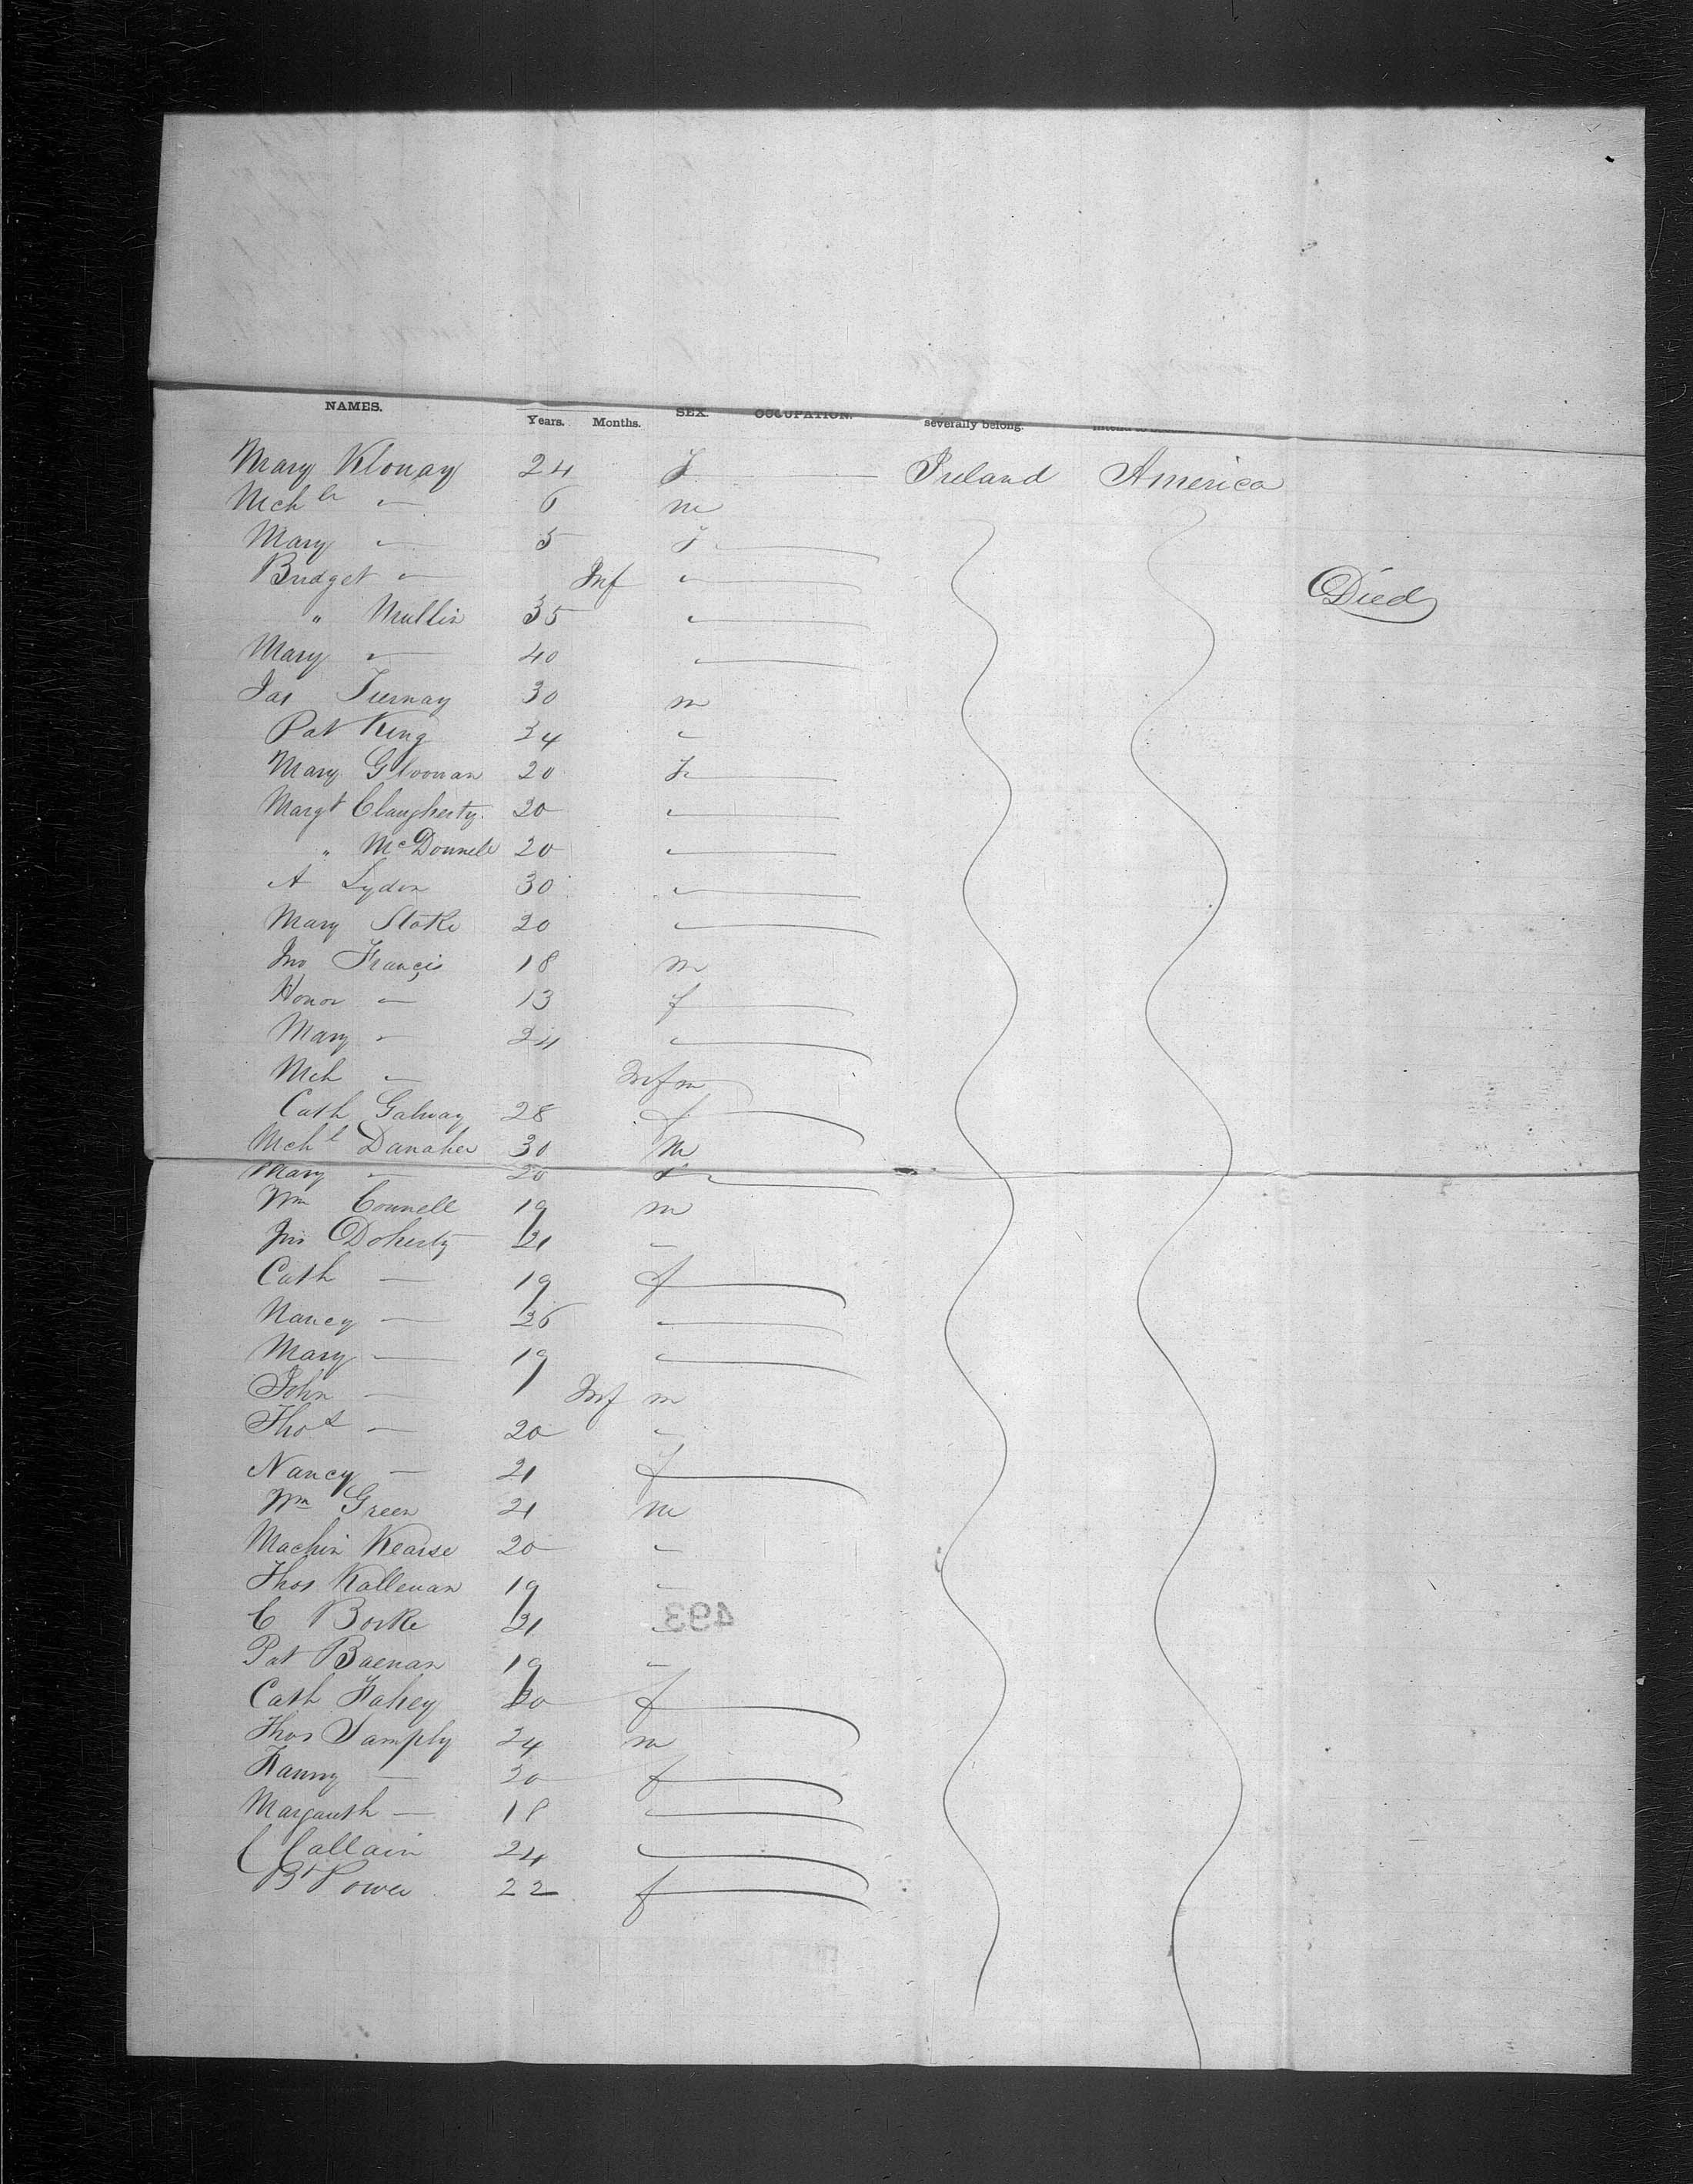 NAMES. Years. Months. SEX. OCCUPATION. severally belong.
Mary Klonay 24 f Ireland America
Mchl " 6 m
Mary " 5 f
Bridget " Inf " Died
" Mullin 35 "
Mary " 40 "
Jas Tiernay 30 m
Pat King 24 "
Mary Gloonan 20 f
Margt Claugherty 20 "
" McDonnell 20 "
A Lydon 30 "
Mary Stoke 20 "
Jno Francis 18 m
Honor " 13 f
Mary " 24 "
Mch " Inf m
Cath Galway 28 f
Mchl Danaher 30 m
Mary " 20 f
Wm Connell 19 m
Jno Doherty 21 "
Cath — 19 f
Nancy — 26 "
Mary — 19 "
John — Inf m
Thos — 20 "
Nancy — 21 f
Wm Green 21 m
Machin Kearse 20 "
Thos Kallenan 19 "
C Borke 21 "
493
Pat Baenan 19 "
Cath Fahey 20 f
Thos Samply 24 m
Fanny — 30 f
Margauth — 18 "
C Callain 24 "
Bt Power 22 f